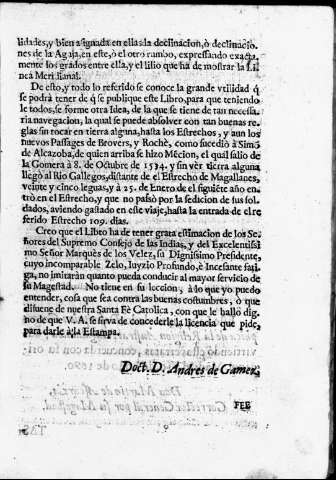 lidades, y bien aiguada en ellas la declinacion, ò declinacio-
nes de la Aguja, en este, ò el otro rumbo, expressando exacta-
mente los grados entre ella, y el lilio que ha de mostrar la Li-
nea Meridiana.
De esto, y todo lo referido se conoce la grande vtilidad q̃
se podrà tener de q̃ se publique este Libro, para que teniendo
le todos, se forme otra Idea, de la que se tiene de tan necessa-
ria navegacion, la qual se puede absolver con tan buenas re-
glas sin tocar en tierra alguna, hasta los Estrechos, y aun los
nuevos Passages de Brovers, y Rochè, como sucediò à Simõ
de Alcazoba, de quien arriba se hizo Mẽcion, el qual saliò de
la Gomera à 8. de Octubre de 1534. y sin vèr tierra alguna
llegò al Rio Gallegos, distante de el Estrecho de Magallanes,
veinte y cinco leguas, y à 25. de Enero de el siguiẽte año en-
trò en el Estrecho, y que no passò por la sedicion de sus sol-
dados, aviendo gastado en este viaje, hasta la entrada de el re-
ferido Estrecho 109. dias.
Creo que el Libro ha de tener grata estimacion de los Se-
ñores del Supremo Consejo de las Indias, y del Excelentissi-
mo Señor Marquès de los Velez, su Dignissimo Presidente,
cuyo incomparable Zelo, Iuyzio Profundo, è Incesante fati-
ga, no imitaràn quanto pueda conducir al mayor servicio de
su Magestad. No tiene en su leccion, à lo que yo puedo
entender, cosa que sea contra las buenas costumbres, ò que
disuene de nuestra Santa Fè Catolica, con que le hallo dig-
no de que V. A. se sirva de concederle la licencia que pide,
para darle à la Estampa.
Doct. D. Andres de Gamez.
FEE